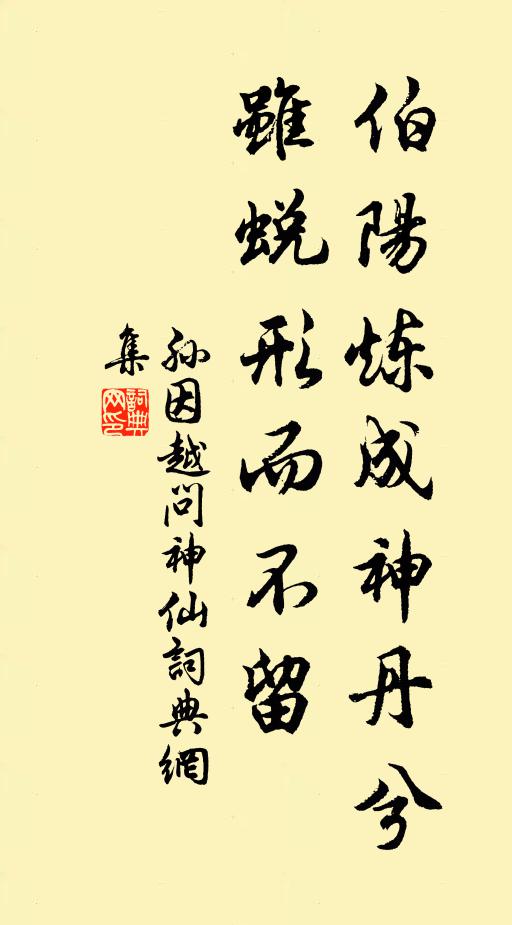 伯陽炼成神丹兮
雖蛻形而不留
孙因越問神仙詞典網
集
詞典
网印